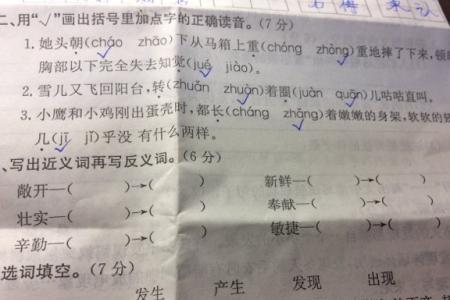 二、用“√”画出括号里加点字的正确读音。(7 分)
1. 她头朝(cháo zhāo)下从马箱上重(chóng zhòng)重地摔了下来,顿
胸部以下完全失去知觉(jué jiào)。
2. 雪儿又飞回阳台,转(zhuǎn zhuàn)着圈(juàn quān)儿咕咕直叫。
3. 小鹰和小鸡刚出蛋壳时,都长(cháng zhǎng)着嫩嫩的身架,软软的
几(jī jǐ)乎没 有什么两样。
、写出近义词再写反义词。(6 分)
敞开—( )→( ) 新鲜—( )→( )
壮实—( )→( ) 奉献—( )→( )
辛勤—( )→( ) 敏捷—( )→( )
选词填空。(7 分)
发生 产生 发现 出现